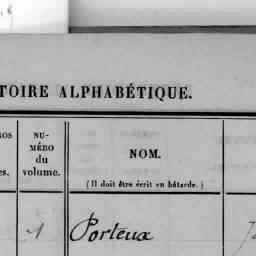 TOIRE ALPHABÉTIQUE.
NU-
MÉRO
du
volume.
NOM.
(Il doit être écrit en bâtarde.)
1 Porteua